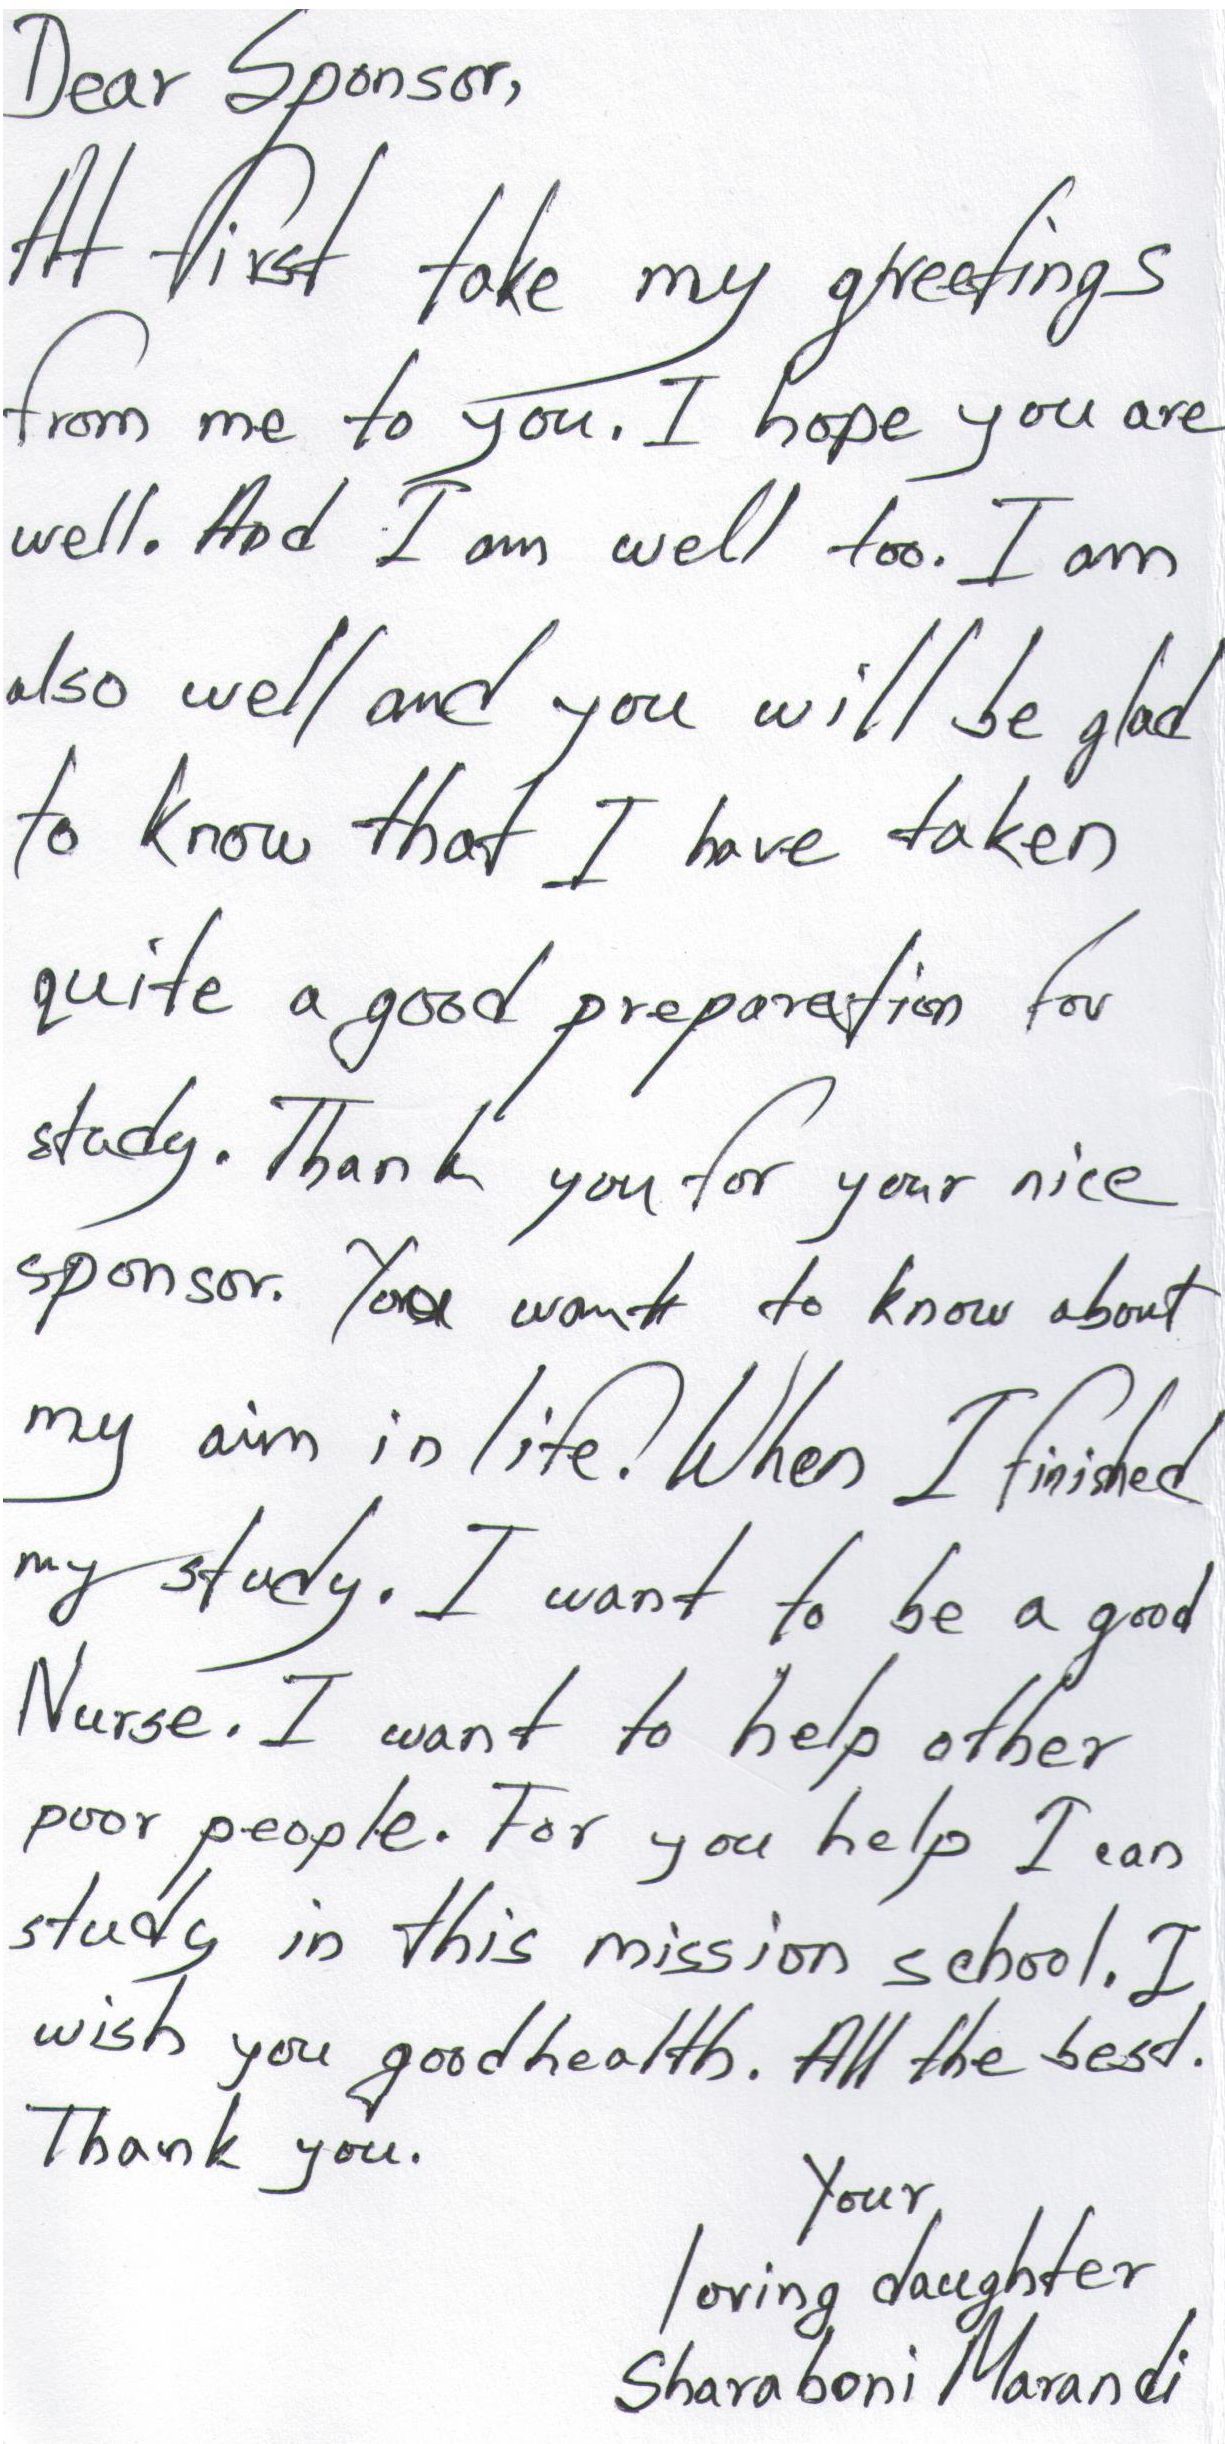 Dear Sponsor,
At first take my greetings
from me to you. I hope you are
well. And I am well too. I am
also well and you will be glad
to know that I have taken
quite a good preparation for
study. Thank you for your nice
sponsor. You want to know about
my aim in life? When I finished
my study. I want to be a good
Nurse. I want to help other
poor people. For you help I can
study in this mission school. I
wish you good health. All the best.
Thank you.
Your
loving daughter
Sharaboni Marandi